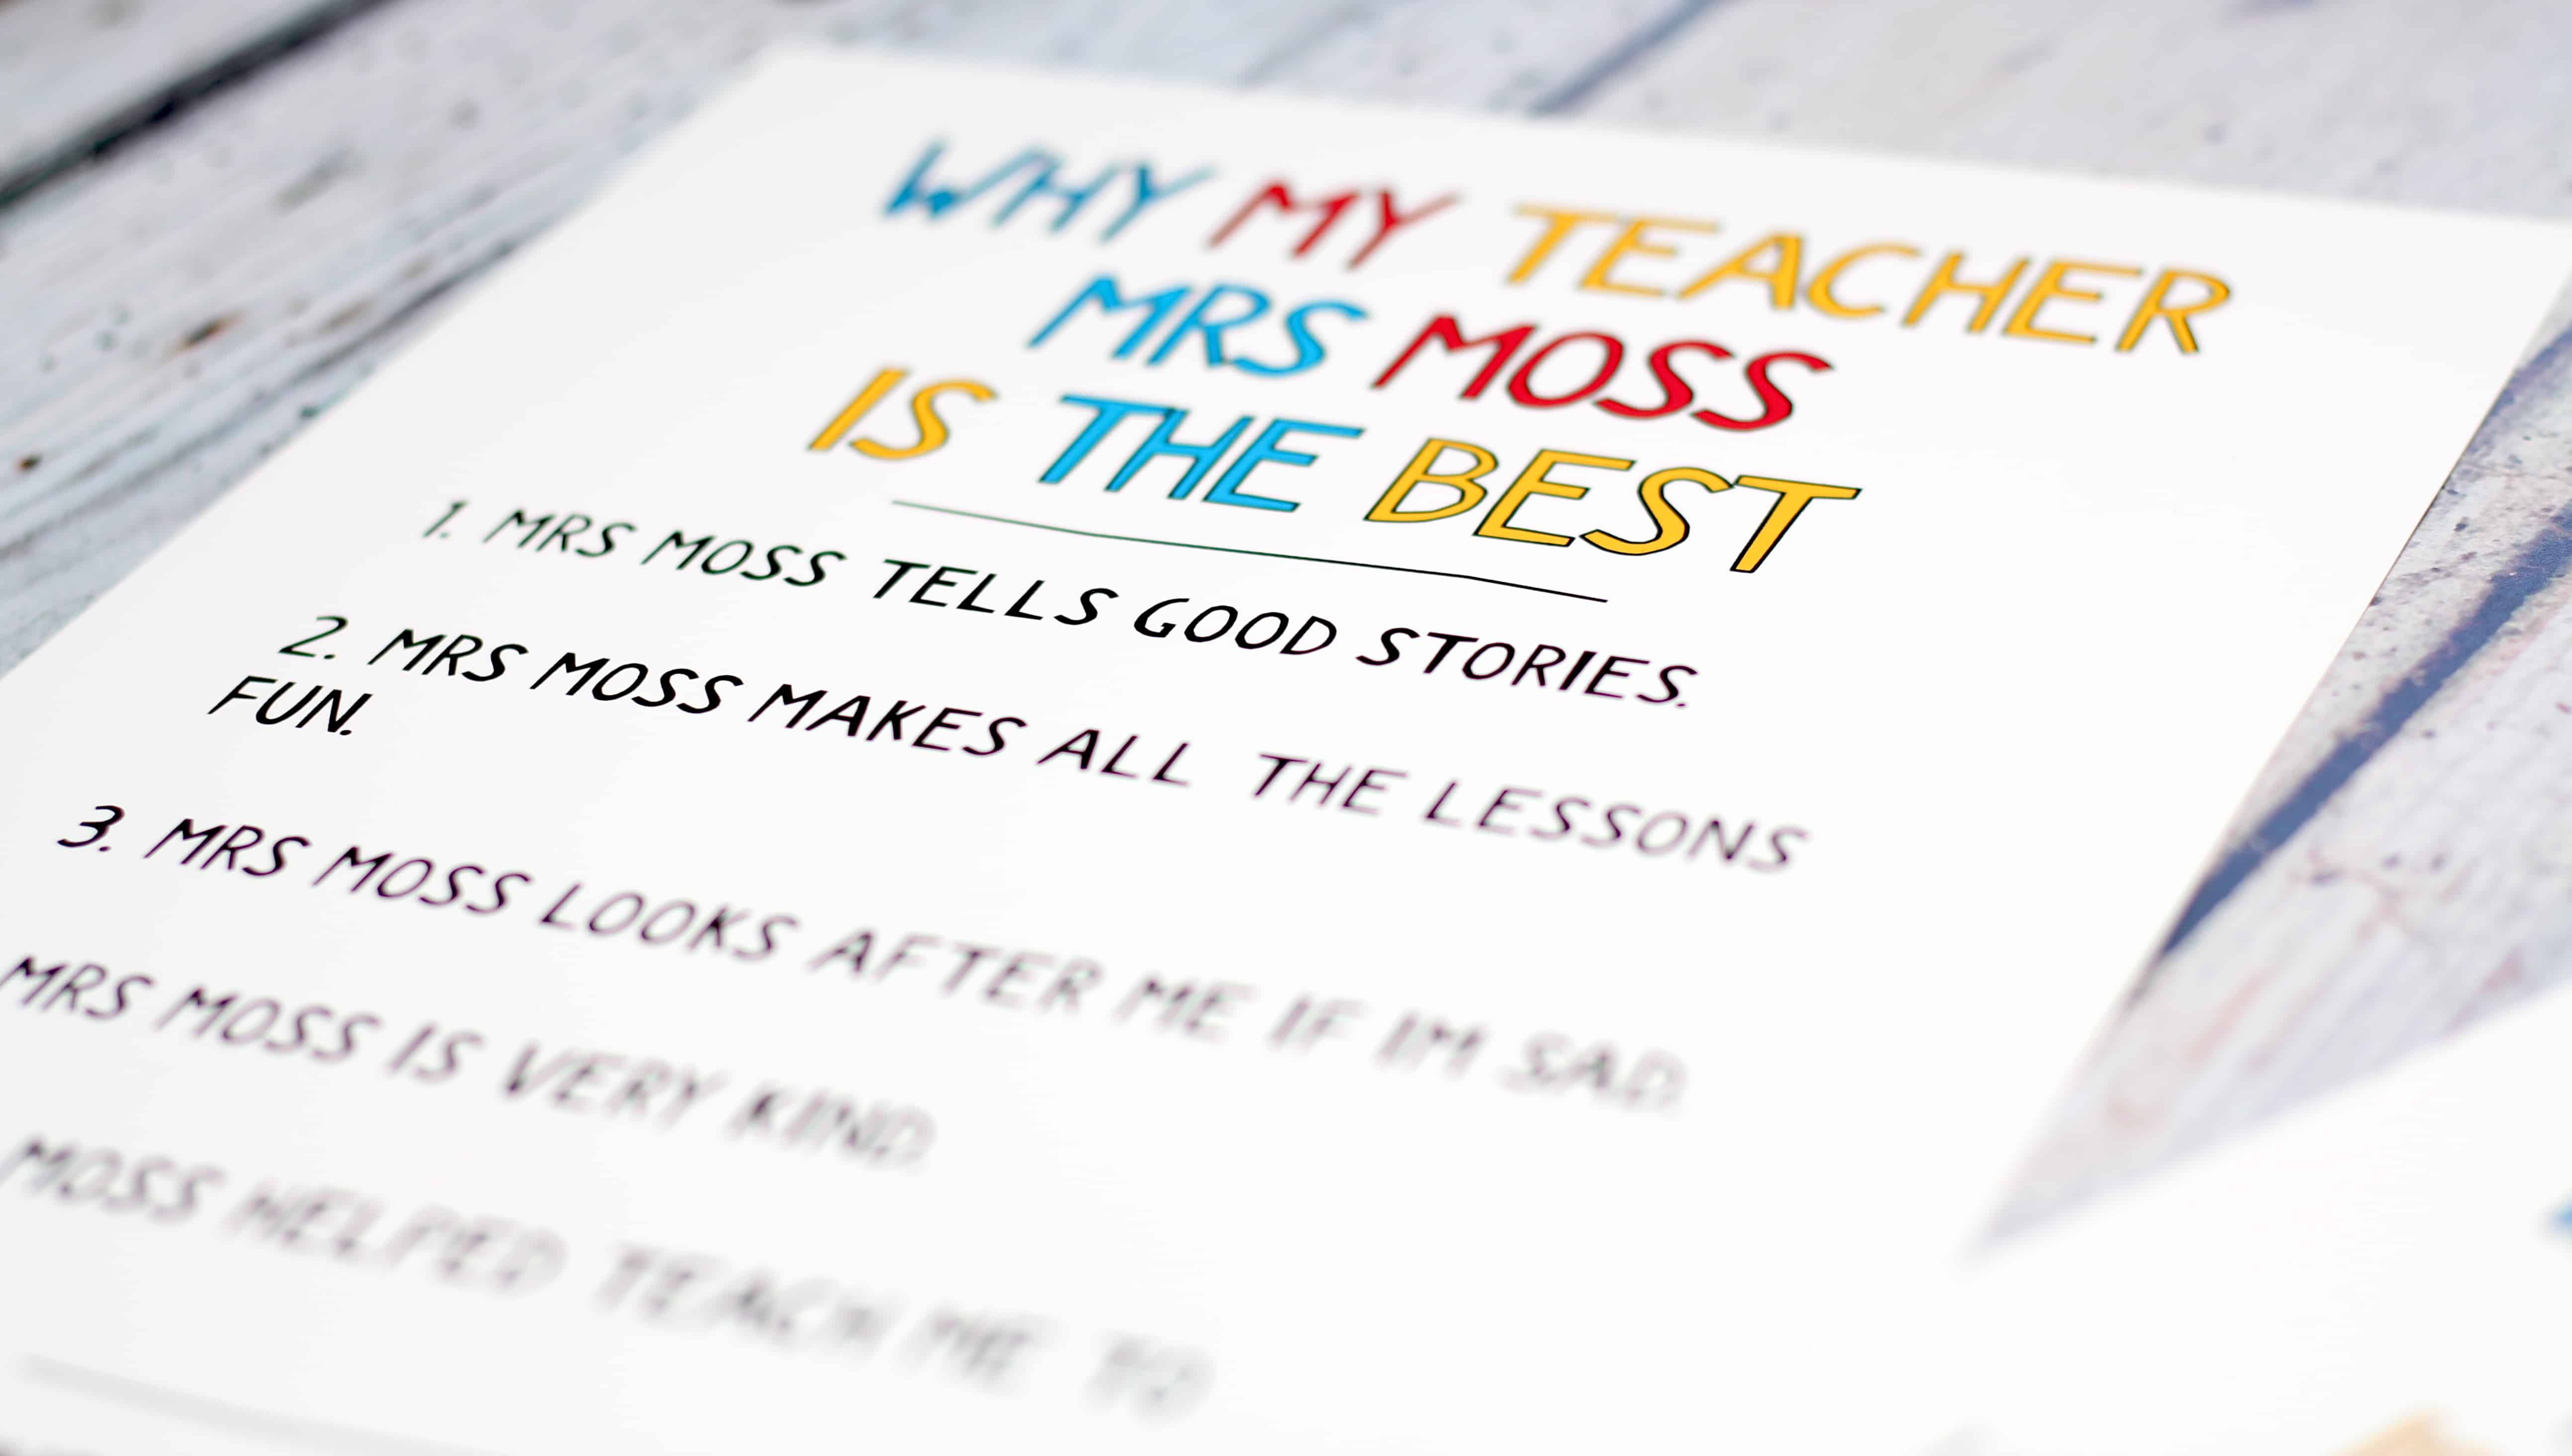 WHY MY TEACHER
MRS MOSS
IS THE BEST
1. MRS MOSS TELLS GOOD STORIES.
2. MRS MOSS MAKES ALL THE LESSONS
FUN.
3. MRS MOSS LOOKS AFTER ME IF IM SAD
MRS MOSS IS VERY KIND
MOSS HELPED TEACH ME TO